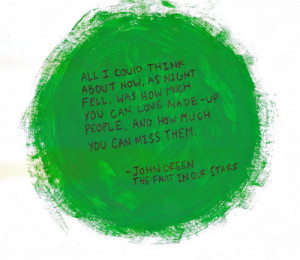 ALL I COULD THINK
ABOUT NOW, AS NIGHT
FELL, WAS HOW MUCH
YOU CAN LOVE MADE-UP
PEOPLE, AND HOW MUCH
YOU CAN MISS THEM.
-JOHN GREEN
THE FAULT IN OUR STARS